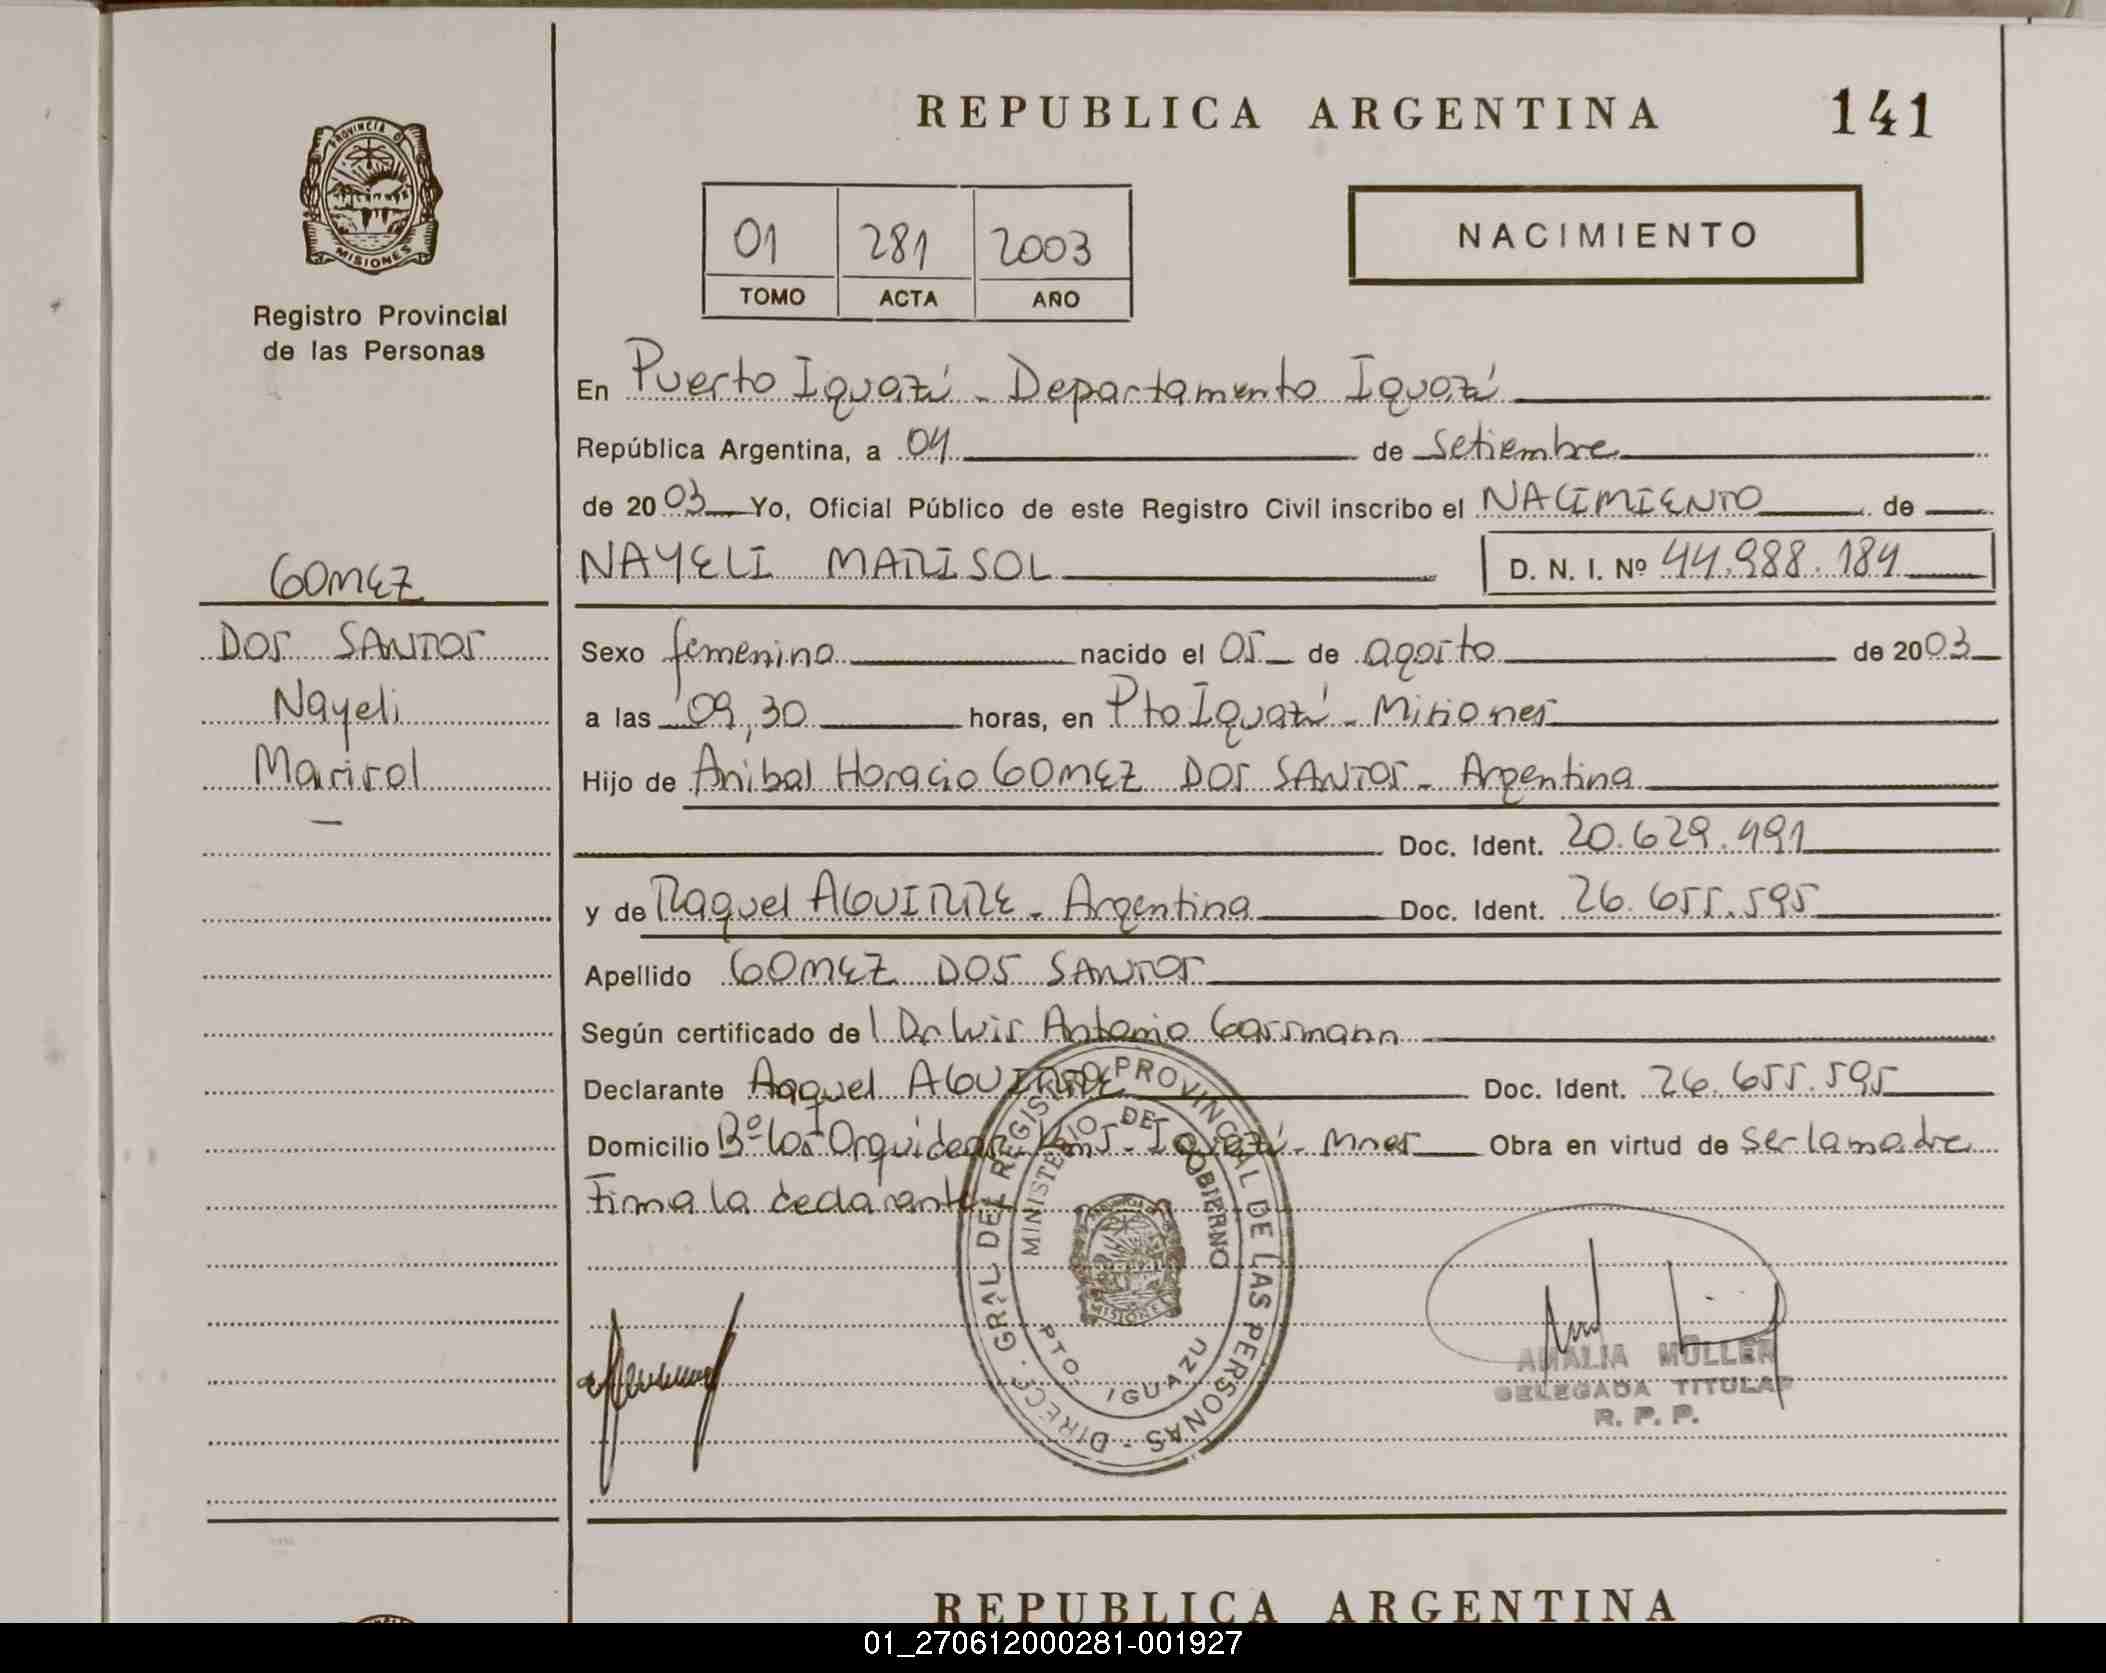 REPUBLICA ARGENTINA
141
PROVINCIA D
MISIONES
Registro Provincial
de las Personas
01 281 2003
TOMO ACTA AÑO
NACIMIENTO
En Puerto Iguazú - Departamento Iguazú
República Argentina, a 04 de Setiembre
de 2003 Yo, Oficial Público de este Registro Civil inscribo el NACIMIENTO de
NAYELI MARISOL D. N. I. Nº 44.988.184
GOMEZ
DOS SANTOS
Nayeli
Marisol
Sexo femenino nacido el 05 de agosto de 2003
a las 09,30 horas, en Pto Iguazú - Misiones
Hijo de Anibal Horacio GOMEZ DOS SANTOS - Argentina
Doc. Ident. 20.629.491
y de Raquel AGUIRRE - Argentina Doc. Ident. 26.655.595
Apellido GOMEZ DOS SANTOS
Según certificado del Dr Luis Antonio Gassmann
Declarante Raquel AGUIRRE Doc. Ident. 26.655.595
Domicilio Bº Las Orquideas Km5 - Iguazú - Mnes Obra en virtud de ser la madre
Firma la declarante
DIRECC. GRAL DEL REGISTRO PROVINCIAL DE LAS PERSONAS -
MINISTERIO DE GOBIERNO
MISIONES
PTO IGUAZU
AMALIA MULLER
DELEGADA TITULAR
R. P. P.
REPUBLICA ARGENTINA
01_270612000281-001927